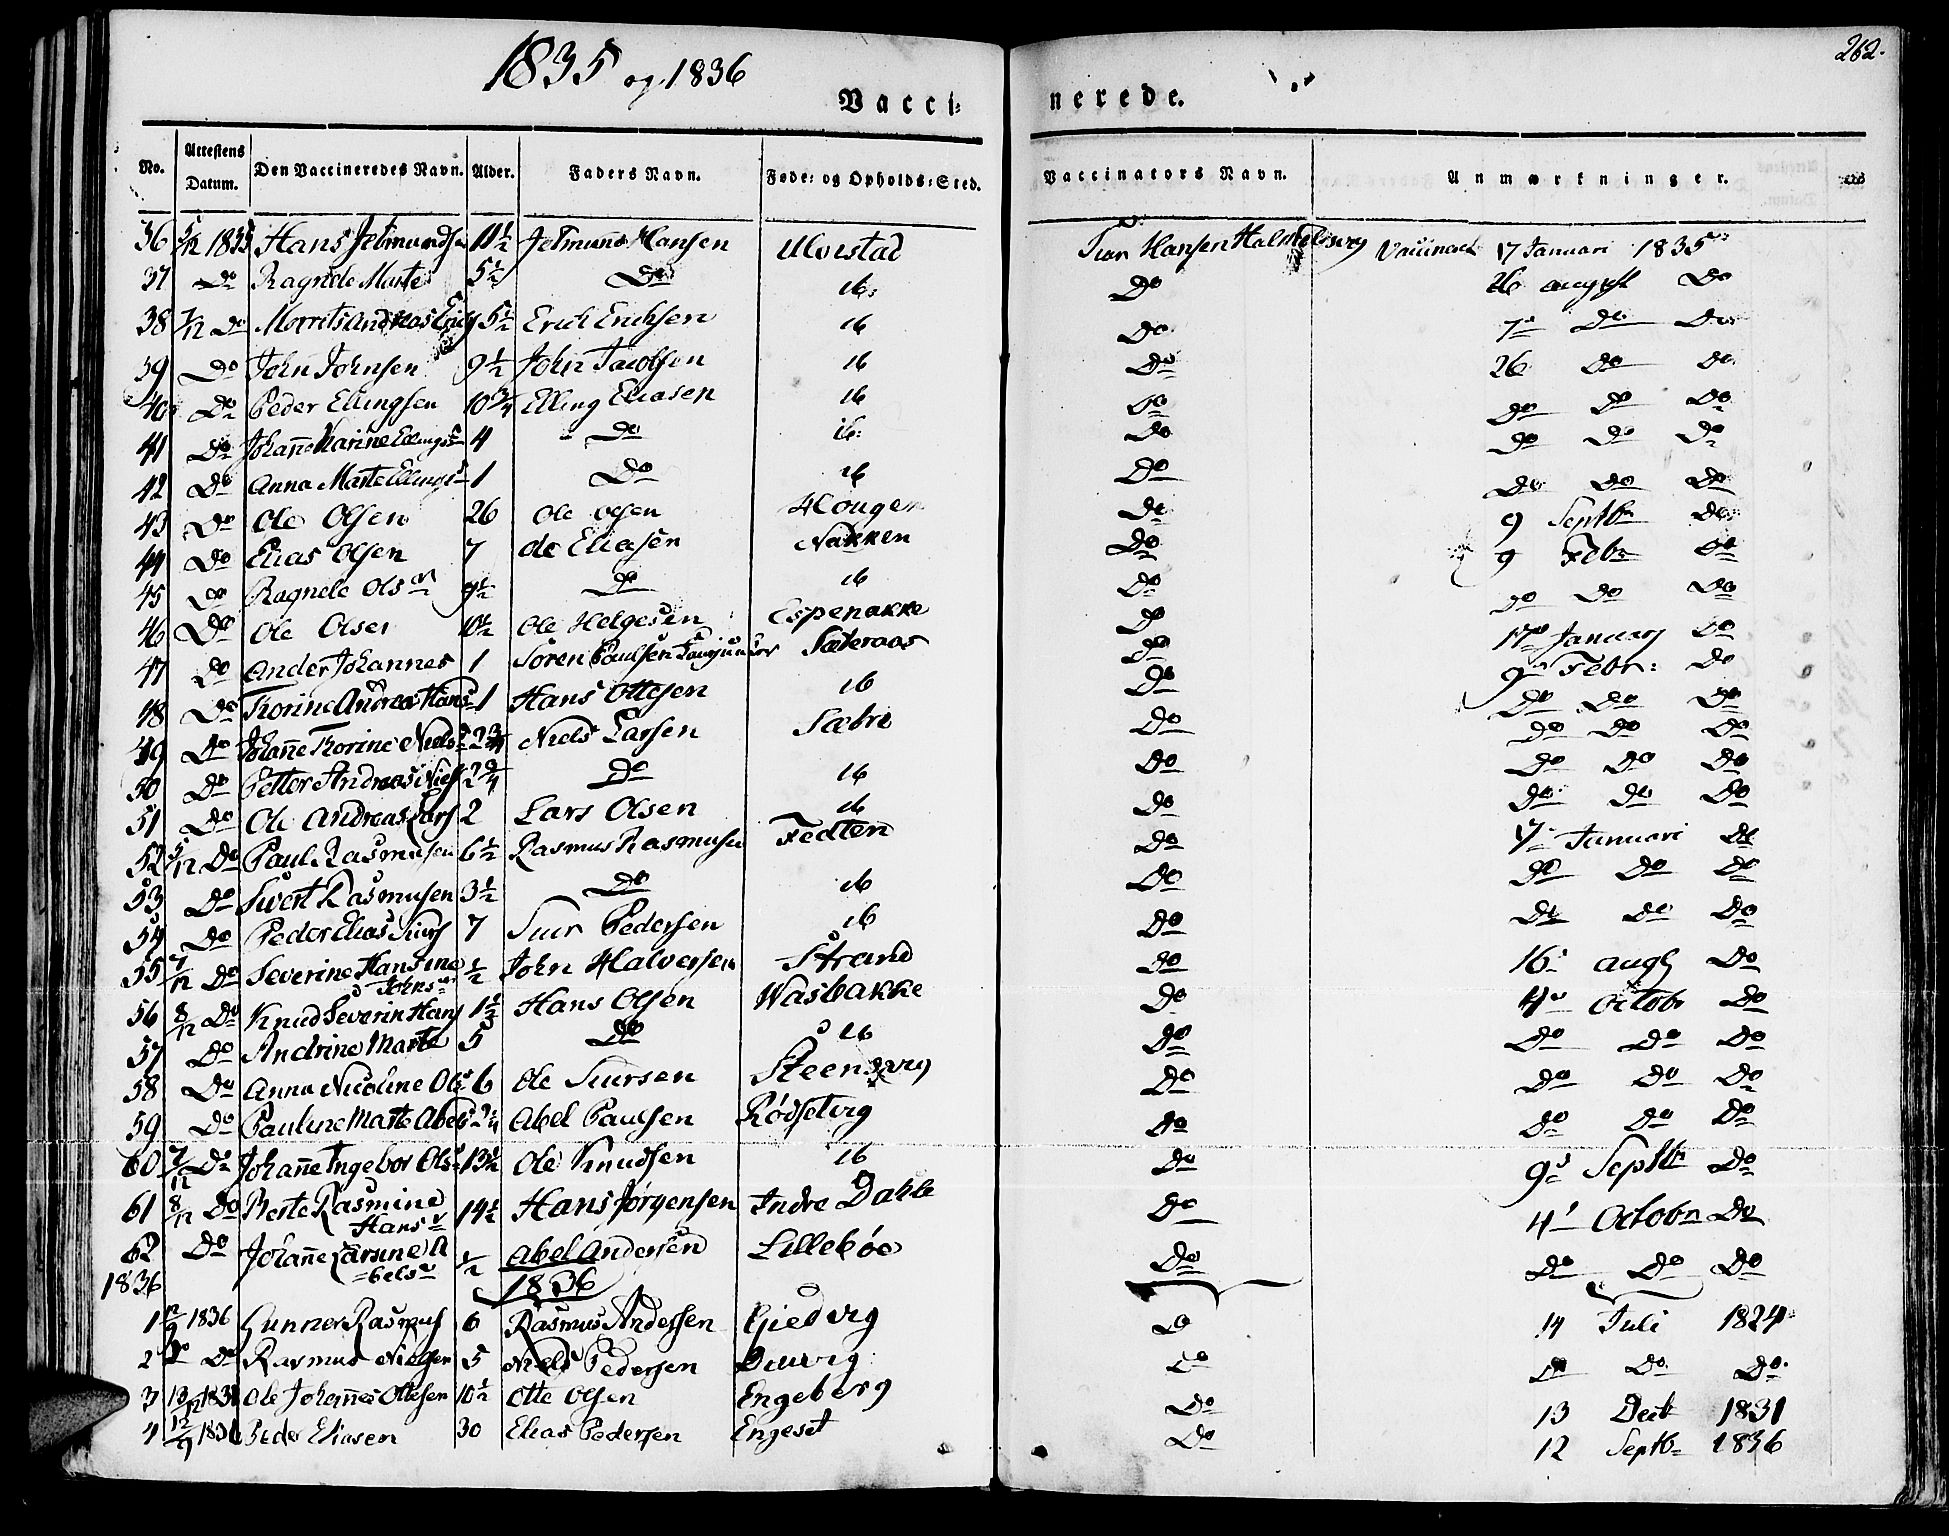 262.
1835 og 1836
Vacci=nerede.
No. | Attestens Datum. | Den Vaccineredes Navn. | Alder. | Faders Navn. | Føde= og Opholds=Sted. | Vaccinators Navn. | Anmærkninger.
36 | 5/12 1835 | Hans Jetmundsen | 11 1/2 | Jetmund Hansen | Ulvestad | Hansen | Vaccineret 17 Januari 1835
37 | Do | Ragnele Marte | 5 1/2 | Do | ib: | Do | 26 august Do
38 | 7/12 Do | Morrits Andreas | 5 1/2 | Erich Erichsen | ib | Do | 7 Do Do
39 | Do | John Johnsen | 9 1/2 | John Jacobsen | ib | Do | 26 Do Do
40 | Do | Peder Ellingsen | 10 3/4 | Elling Eliasen | ib | Do | Do Do Do
41 | Do | Johanne Karine Ellingsd | 4 | Do | ib: | Do | Do Do Do
42 | Do | Anna Marte Ellingsd | 1 | Do | ib | Do | Do Do Do
43 | Do | Ole Olsen | 26 | Ole Olsen | Houger | Do | 9 Septbr Do
44 | Do | Elias Olsen | 7 | Ole Eliasen | Nakken | Do | 9 Febr Do
45 | Do | Ragnele Olsdr | 9 1/2 | Do | ib | Do | Do Do Do
46 | Do | Ole Olsen | 10 1/2 | Ole Helgesen | Espenakke | Do | 17 Januarj Do
47 | Do | Ander Johannes | 1 | Søren Paulsen | Sæteraas | Do | 9 Febr: Do
48 | Do | Thorine Andrea Hansd | 1 | Hans Ottesen | ib | Do | Do Do Do
49 | Do | Johanne Thorine Nielsd | 2 3/4 | Niels Larsen | Sæbø | Do | Do Do Do
50 | Do | Petter Andreas Niels | 2 3/4 | Do | ib | Do | Do Do Do
51 | Do | Ole Andreas Lars | 2 | Lars Olsen | ib | Do | Do Do Do
52 | 5/12 Do | Paul Rasmusen | 6 1/2 | Rasmus Rasmusen | Fedten | Do | 17 Januari Do
53 | Do | Sivert Rasmusen | 3 1/2 | Do | ib | Do | Do Do Do
54 | Do | Peder Elias Siurs | 7 | Siur Pedersen | ib | Do | Do Do Do
55 | 7/12 Do | Severine Hansine Johnsdr | 1/2 | John Halversen | Strand | Do | 16 aug Do
56 | 8/12 Do | Knud Severin Hans | 1 1/2 | Hans Olsen | Wasbakke | Do | 4 Octobr Do
57 | Do | Andrine Marte | 5 | Do | ib | Do | Do Do Do
58 | Do | Anna Nicoline Olsd | 6 | Ole Siursen | Steensvig | Do | Do Do Do
59 | Do | Pauline Marte Abelsd | 2 1/4 | Abel Paulsen | Rødsetvig | Do | Do Do Do
60 | 7/12 Do | Johanne Ingebor Olsd | 13 1/2 | Ole Knudsen | ib | Do | 9 Septbr Do
61 | 8/12 Do | Berte Rasmine Hansd | 14 1/2 | Hans Jørgensen | Indre Dahle | Do | 4 Octobr Do
62 | Do | Johanne Larsine A=belsd | 1/2 | Abel Andersen | Lillebøe | Do | Do Do Do
1836 | 1836
1 | 12/9 1836 | Gunner Rasmus | 6 | Rasmus Andersen | Gjedvig | Do | 14 Juli 1824
2 | Do Do | Rasmus Nielsen | 5 | Niels Pedersen | | Do | Do Do Do
3 | 13/12 1831 | Ole Johannes Ottesen | 10 1/2 | Otte Olsen | Engeberg | Do | 13 Decb 1831
4 | 12/9 1836 | Peder Eliasen | 30 | Elias Pedersen | Engeset | Do | 12 Septbr 1836